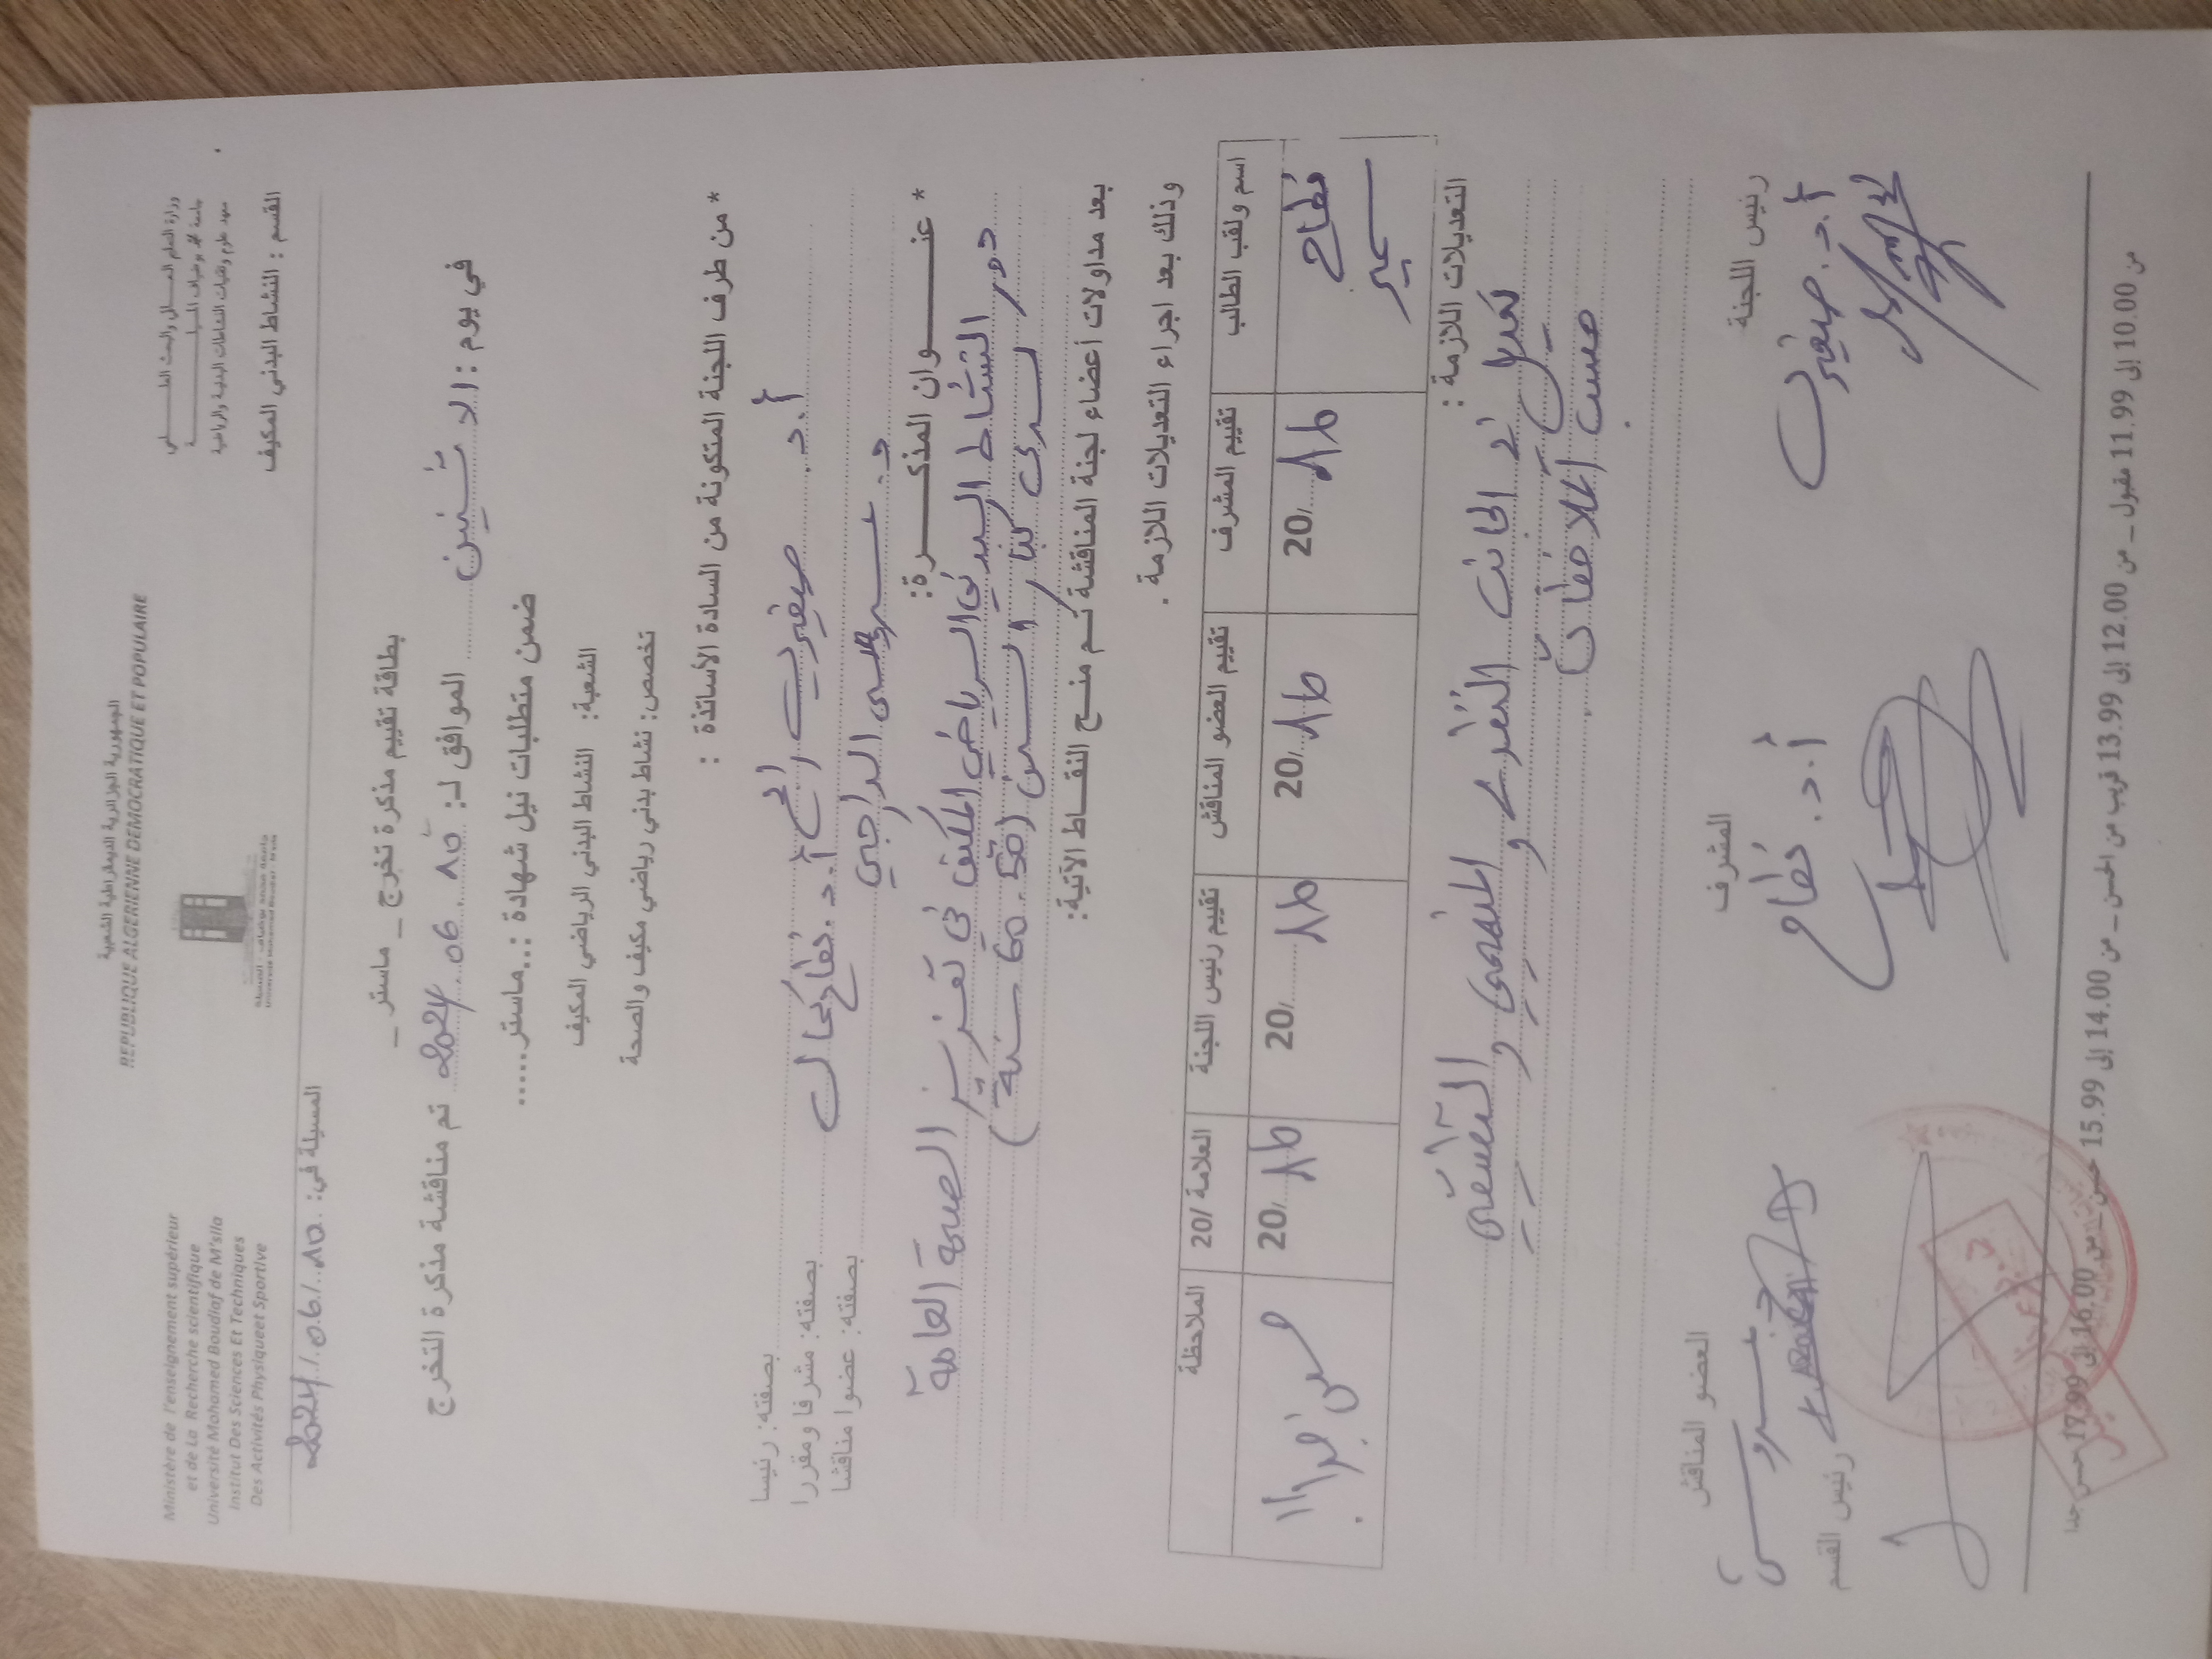 الجمهورية الجزائرية الديمقراطية الشعبية
REPUBLIQUE ALGERIENNE DEMOCRATIQUE ET POPULAIRE
وزارة التعليم العـــالي والبحث العلـــــــمي
جامعة محمد بوضياف المسيلـــــــــــة
معهد علوم وتقنيات النشاطات البدنية والرياضية
القسم : النشاط البدني المكيف
Ministère de l'enseignement supérieur
et de La Recherche scientifique
Université Mohamed Boudiaf de M'sila
Institut Des Sciences Et Techniques
Des Activités Physiqueet Sportive
المسيلة في: 2024/06/10
بطاقة تقييم مذكرة تخرج _ ماستر _
في يوم : الاثنين الموافق لـ: 10.06.2024 تم مناقشة مذكرة التخرج
ضمن متطلبات نيل شهادة :..ماستر.....
الشعبة: النشاط البدني الرياضي المكيف
تخصص: نشاط بدني رياضي مكيف والصحة
* من طرف اللجنة المتكونة من السادة الأساتذة :
أ.د. صغيري رابح بصفته: رئيسا
أ.د. لفتاح كمال بصفته: مشرفا ومقررا
د. الدراجي بصفته: عضوا مناقشا
* عنـــــوان المذكـــــرة:
دور النشاط البدني الرياضي المكيف في تعزيز الصحة العامة
لدى كبار السن (50.60 سنة)
بعد مداولات أعضاء لجنة المناقشة تـم منـح النقـاط الآتية:
وذلك بعد اجراء التعديلات اللازمة .
اسم ولقب الطالب تقييم المشرف تقييم العضو المناقش تقييم رئيس اللجنة العلامة /20 الملاحظة
20/ 16 20/ 16 20/ 16 20/ 16 حسن جدا
التعديلات اللازمة :
تعديل في الجانب النظري والمنهجي و
حسب الملاحظات
رئيس اللجنة المشرف العضو المناقش
أ.د. صغيري
أ.د.
رئيس القسم
من 10.00 إلى 11.99 مقبول _ من 12.00 إلى 13.99 قريب من الحسن _ من 14.00 إلى 15.99 حسن _ من 16.00 إلى 17.99 حسن جدا